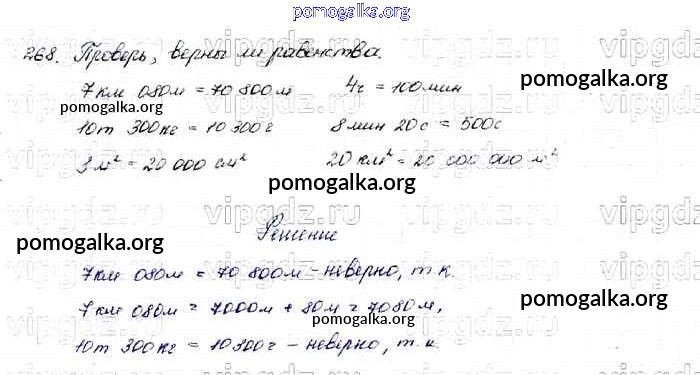 pomogalka.org
268. Проверь, верны ли равенства.
7 км 080м = 70 800 м 4ч = 100 мин
pomogalka.org pomogalka.org
10т 300кг = 10 300 г 8 мин 20с = 500с
3 м² = 20 000 см² 20 км² = 20 000 000 м²
pomogalka.org
vipgdz.ru vipgdz.ru
Решение
pomogalka.org
7км 080м = 70 800м - неверно, т.к.
pomogalka.org
7 км 080м = 7000м + 80м = 7080м,
pomogalka.org
10т 300кг = 10 300г - неверно, т.к.
pomogalka.org